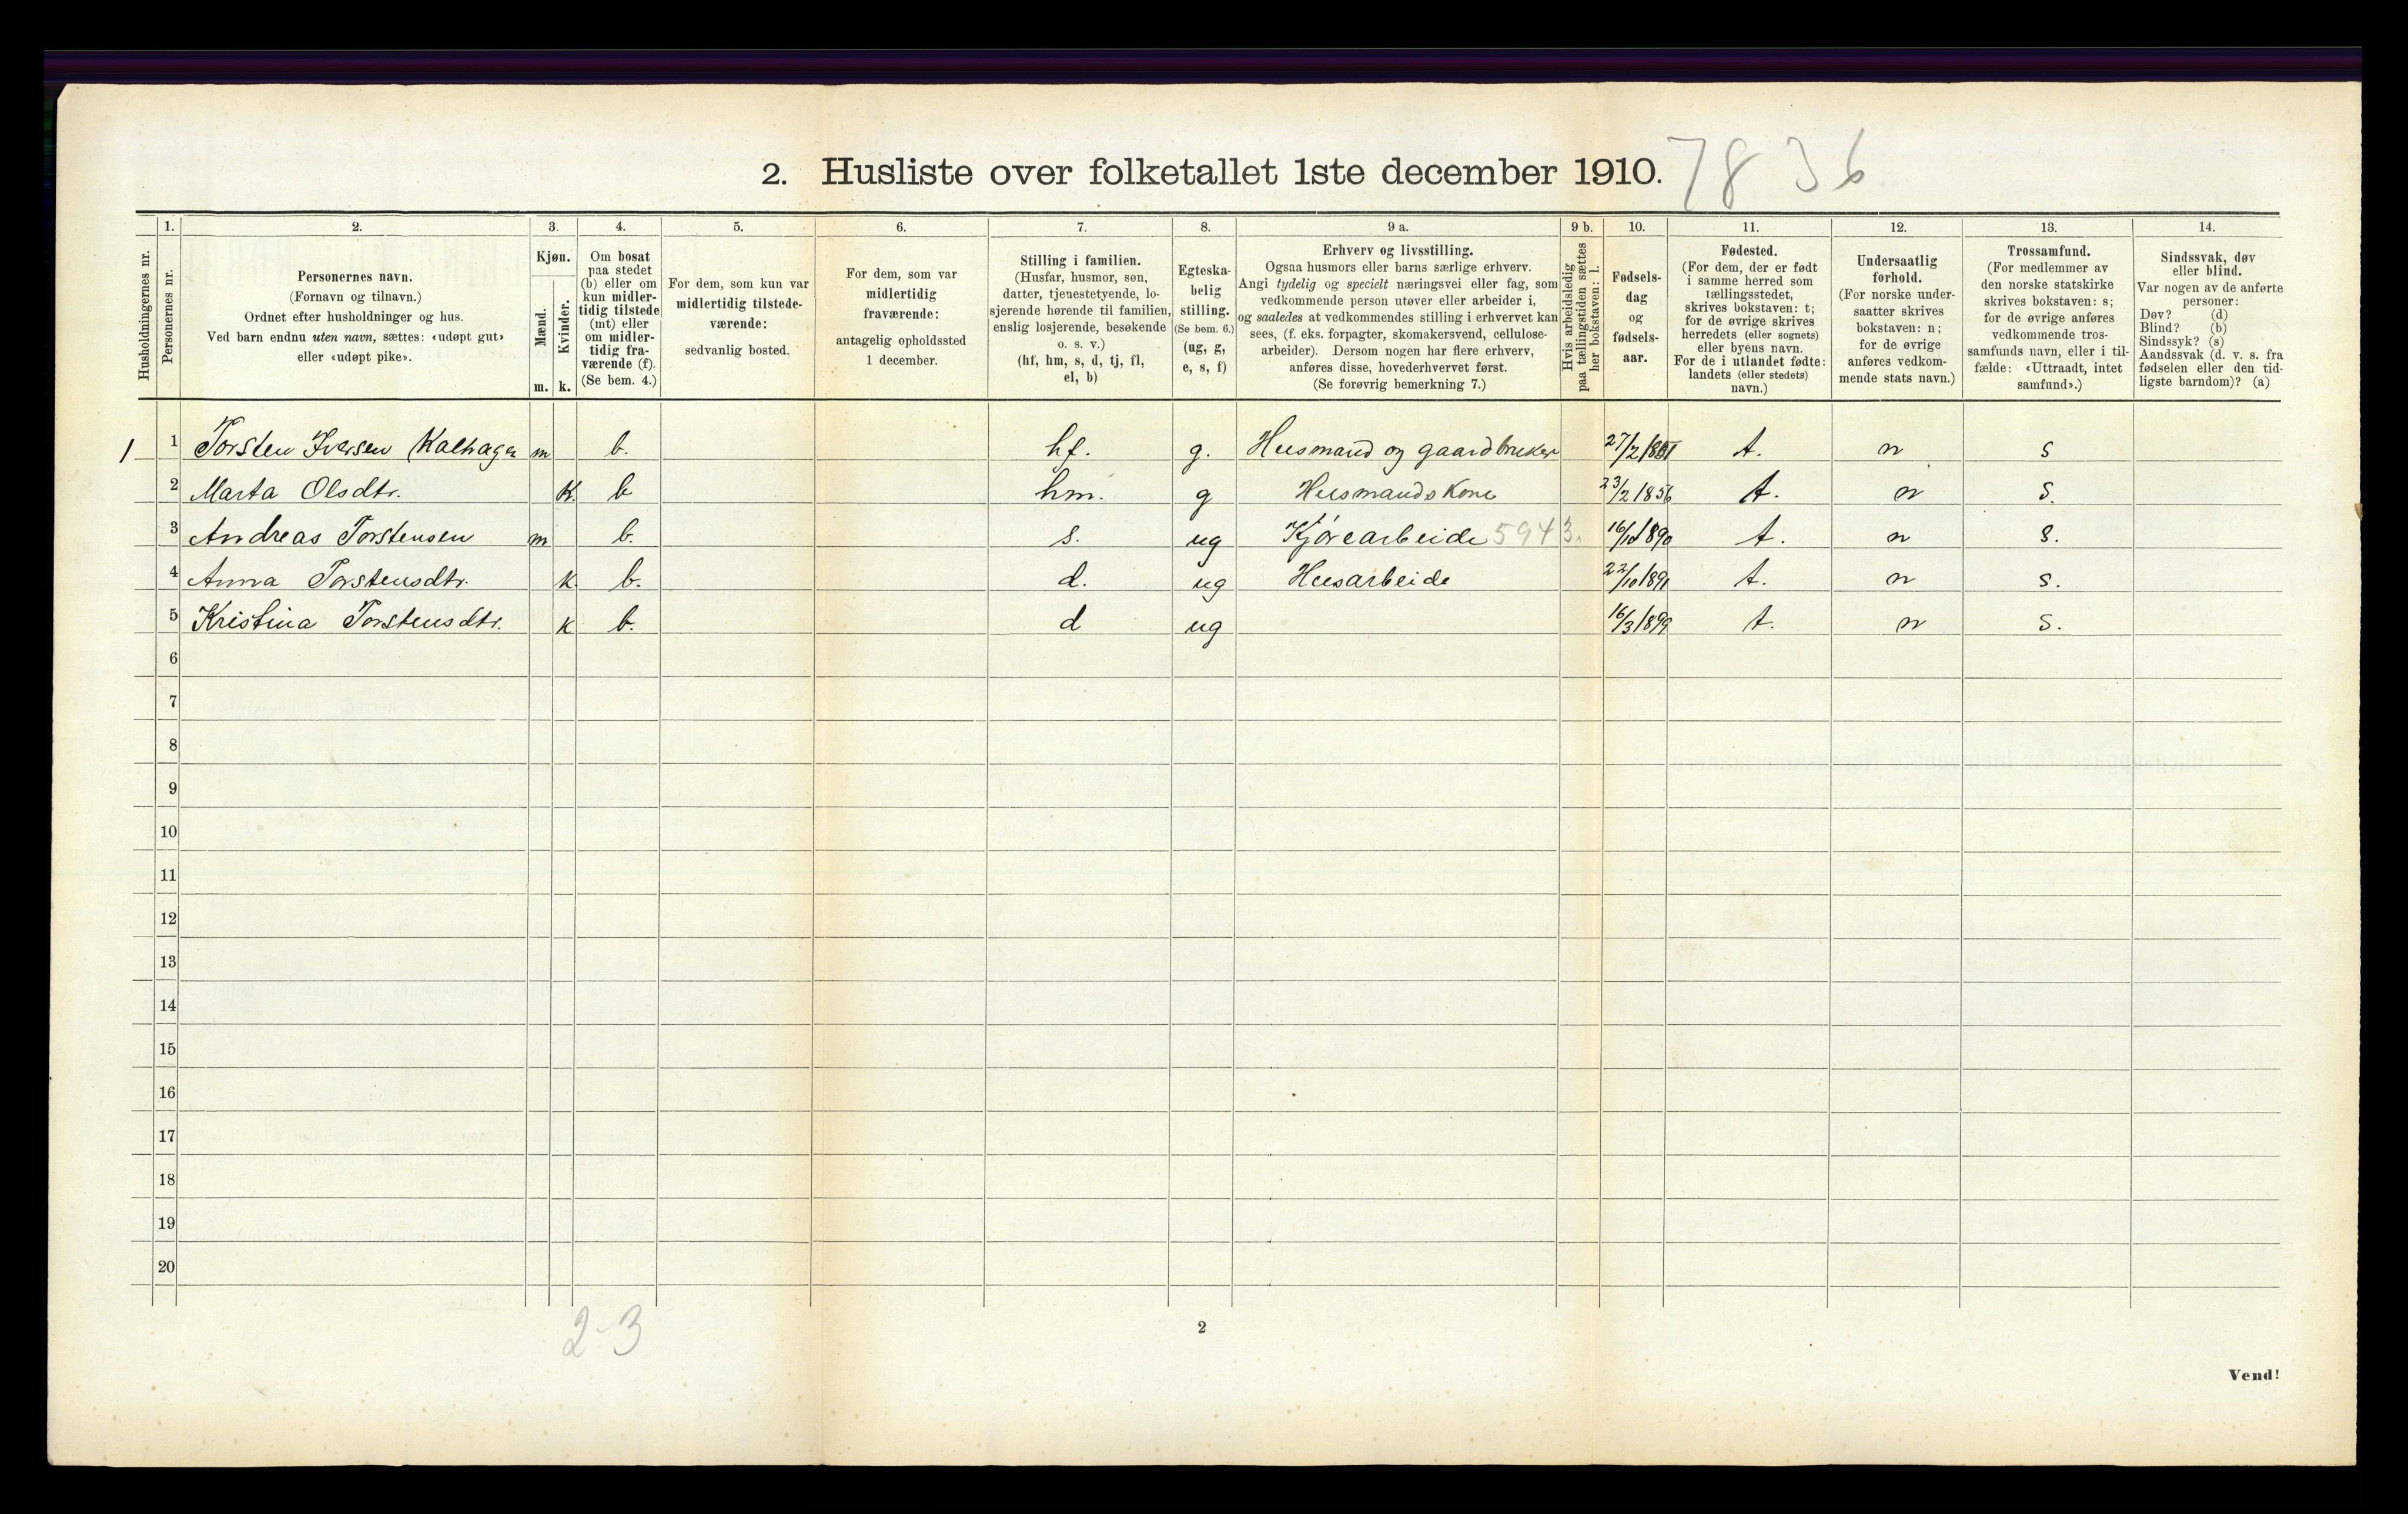 2. Husliste over folketallet 1ste december 1910. 7836
Husholdningernes nr.
1.
Personernes nr.
2.
Personernes navn.
(Fornavn og tilnavn.)
Ordnet efter husholdninger og hus.
Ved barn endnu uten navn, sættes: «udøpt gut»
eller «udøpt pike».
3.
Kjøn.
Mænd.
m.
Kvinder.
k.
4.
Om bosat
paa stedet
(b) eller om
kun midler-
tidig tilstede
(mt) eller
om midler-
tidig fra-
værende (f).
(Se bem. 4.)
5.
For dem, som kun var
midlertidig tilstede-
værende:
sedvanlig bosted.
6.
For dem, som var
midlertidig
fraværende:
antagelig opholdssted
1 december.
7.
Stilling i familien.
(Husfar, husmor, søn,
datter, tjenestetyende, lo-
sjerende hørende til familien,
enslig losjerende, besøkende
o. s. v.)
(hf, hm, s, d, tj, fl,
el, b)
8.
Egteska-
belig
stilling.
(Se bem. 6.)
(ug, g,
e, s, f)
9 a.
Erhverv og livsstilling.
Ogsaa husmors eller barns særlige erhverv.
Angi tydelig og specielt næringsvei eller fag, som
vedkommende person utøver eller arbeider i,
og saaledes at vedkommendes stilling i erhvervet kan
sees, (f. eks. forpagter, skomakersvend, cellulose-
arbeider). Dersom nogen har flere erhverv,
anføres disse, hovederhvervet først.
(Se forøvrig bemerkning 7.)
9 b.
Hvis arbeidsledig
paa tællingstiden sættes
her bokstaven: l.
10.
Fødsels-
dag
og
fødsels-
aar.
11.
Fødested.
(For dem, der er født
i samme herred som
tællingsstedet,
skrives bokstaven: t;
for de øvrige skrives
herredets (eller sognets)
eller byens navn.
For de i utlandet fødte:
landets (eller stedets)
navn.)
12.
Undersaatlig
forhold.
(For norske under-
saatter skrives
bokstaven: n;
for de øvrige
anføres vedkom-
mende stats navn.)
13.
Trossamfund.
(For medlemmer av
den norske statskirke
skrives bokstaven: s;
for de øvrige anføres
vedkommende tros-
samfunds navn, eller i til-
fælde: «Uttraadt, intet
samfund».)
14.
Sindssvak, døv
eller blind.
Var nogen av de anførte
personer:
Døv? (d)
Blind? (b)
Sindssyk? (s)
Aandssvak (d. v. s. fra
fødselen eller den tid-
ligste barndom)? (a)
1 1 Torsten Iversen Kalhagen m b. hf. g. Husmand og gaardbruker 27/2 1851 t. n s
2 Marta Olsdtr. k. b hm. g Husmandskone 23/2 1856 t. n s.
3 Andreas Torstensen m b. s. ug Kjørearbeide 5943. 16/10 1890 t. n s.
4 Anna Torstensdtr. k. b. d. ug Husarbeide 22/10 1891 t. n s.
5 Kristina Torstensdtr. k b. d ug 16/3 1899 t. n s.
6
7
8
9
10
11
12
13
14
15
16
17
18
19
20
2-3
2
Vend!